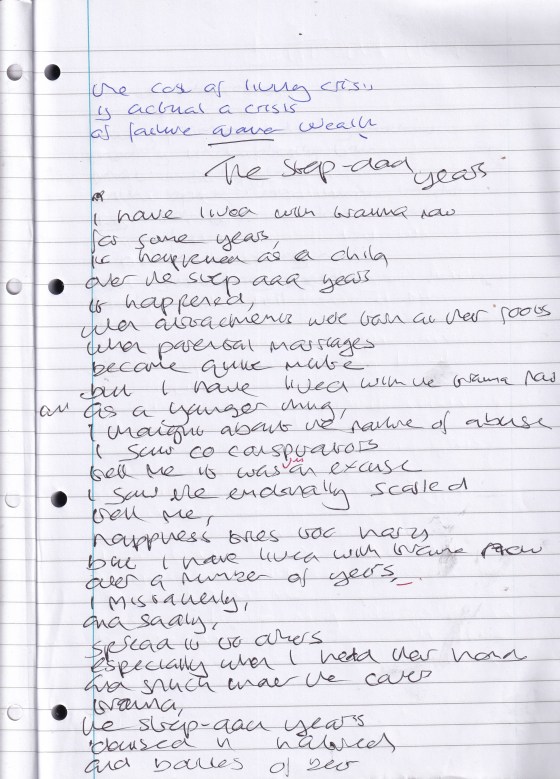 the cost of living crisis
is actual a crisis
of failure around wealth
The step-dad years
I have lived with trauma now
for some years,
it happened as a child
over the step dad years
it happened,
when attachments were torn at their roots
when parental marriages
became quite
but I have lived with the trauma now
as a younger thing,
I thought about the nature of abuse
I saw co conspirators
tell me it was an excuse
I saw the emotionally scarred
tell me,
happyness tries too hard
but I have lived with trauma now
over a number of years,
I mistakenly,
and sadly,
spread it to others
especially when I held their hand
and snuck under the covers
trauma,
the step-dad years
doused in hatred
and bottles of beer